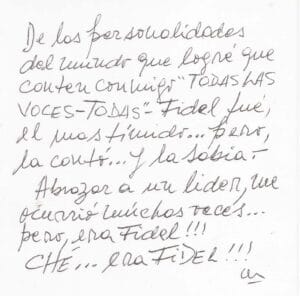 De las personalidades
del mundo que logré que
canten conmigo "TODAS LAS
VOCES-TODAS"- Fidel fué,
el mas tímido... pero,
la cantó... Y la sabía-
Abrazar a un lider, me
ocurrió muchas veces...
pero, era Fidel!!!
CHÉ... era FiDEL!!!